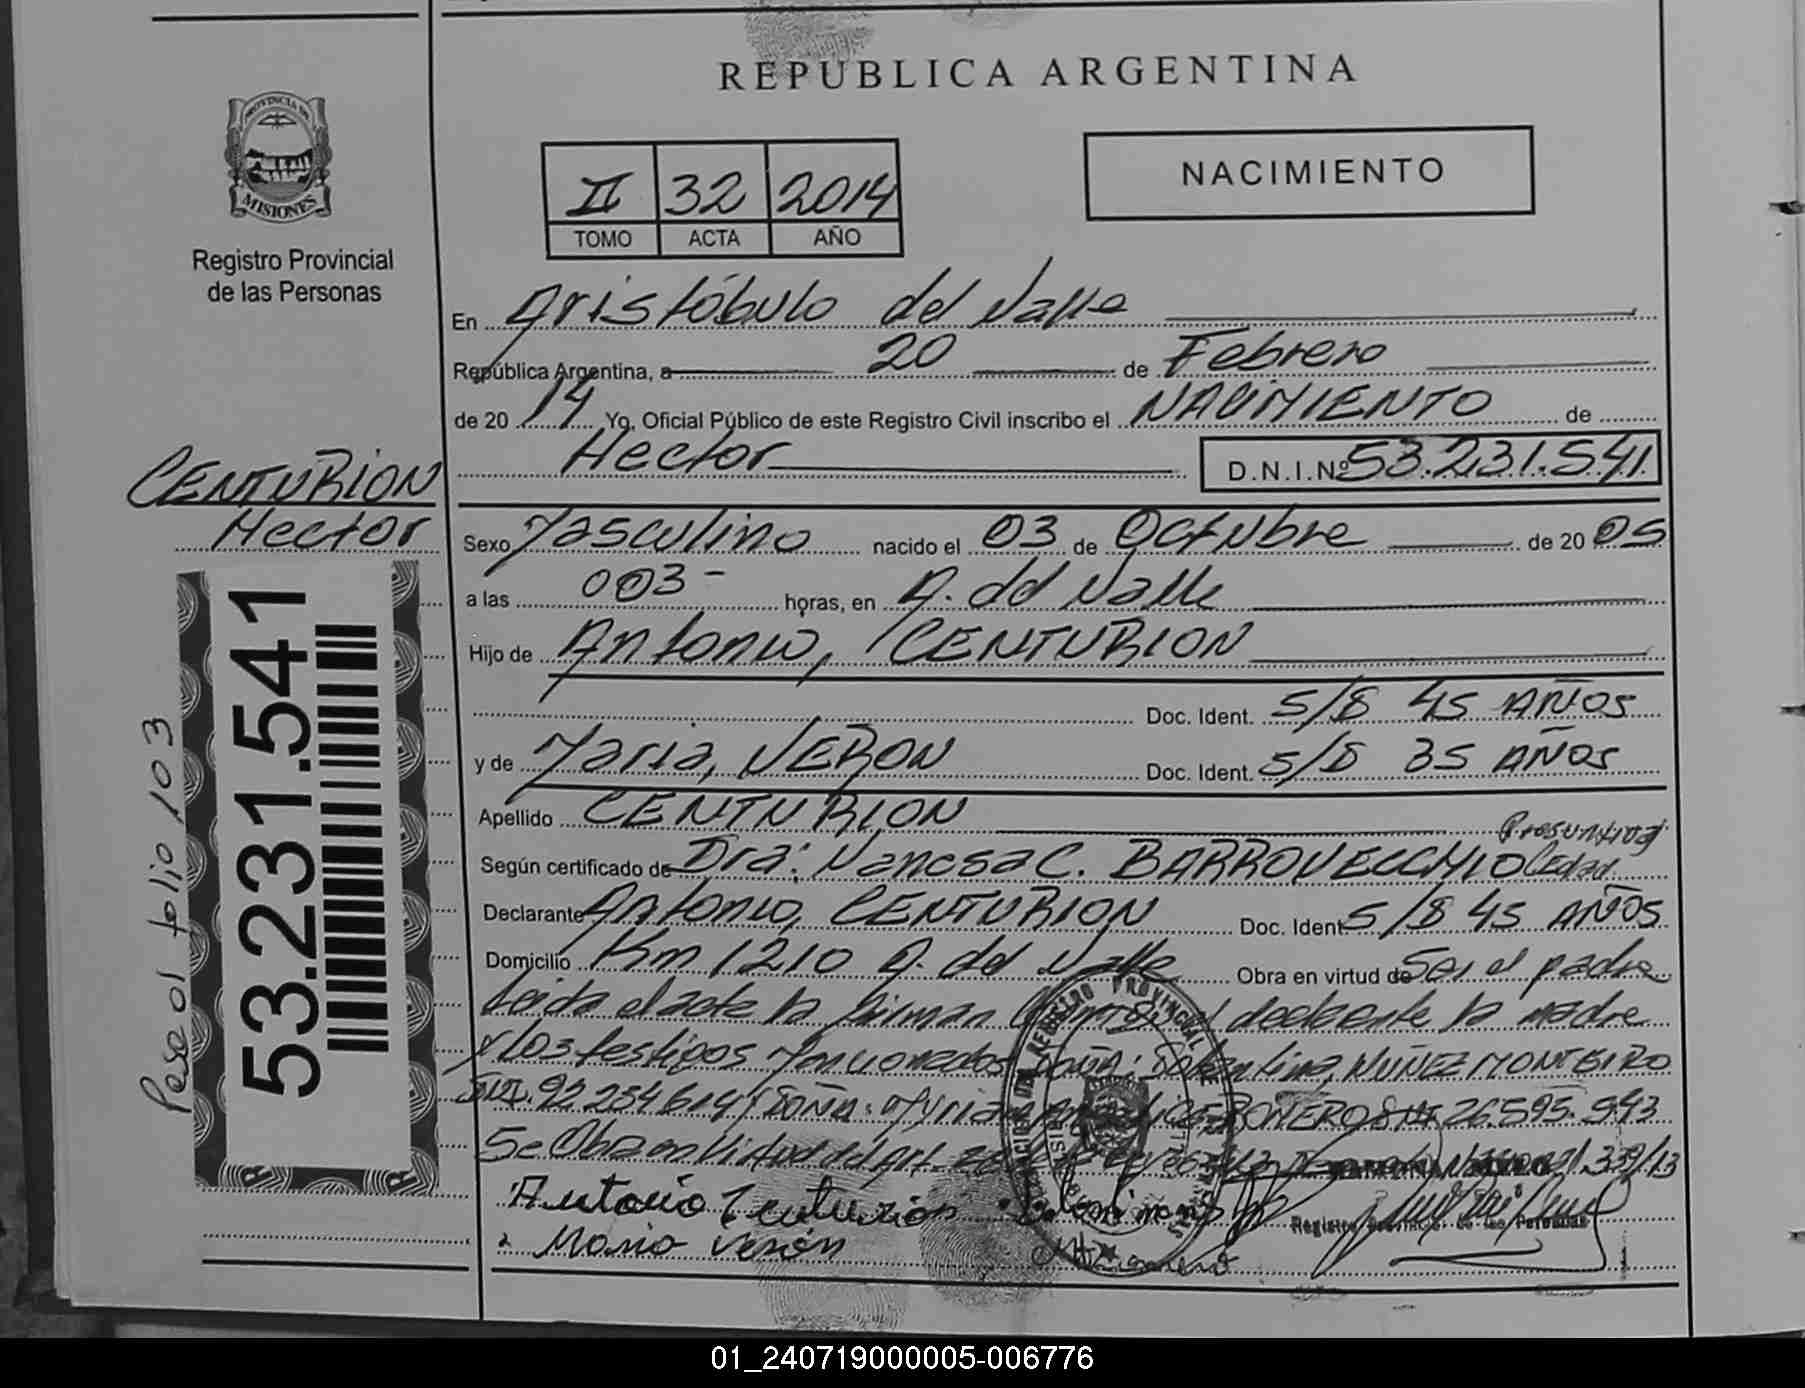 REPUBLICA ARGENTINA
PROVINCIA DE
MISIONES
Registro Provincial
de las Personas
II 32 2014
TOMO ACTA AÑO
NACIMIENTO
En Aristóbulo del Valle
República Argentina, a 20 de Febrero
de 20 14 Yo, Oficial Público de este Registro Civil inscribo el NACIMIENTO de
Hector D.N.I.Nº 53.231.541
CENTURION
Hector
53.231.541
Pasa al folio 103
Sexo Masculino nacido el 03 de Octubre de 20 05
a las 003- horas, en A. del Valle
Hijo de Antonio, CENTURION
Doc. Ident. S/D 45 AÑOS
y de Maria, VERON Doc. Ident. S/D 35 AÑOS
Apellido CENTURION
Presuntiva
Según certificado de Dra: C. BARROVECCHIO edad
Declarante Antonio, CENTURION Doc. Ident. S/D 45 AÑOS
Domicilio Km 1210 A. del Valle Obra en virtud de Ser el padre
Leida el acta la firman el la madre
y los testigos mencionados DOÑA: NUÑEZ MONTEIRO
DNI. 92.234.614 DOÑA: ROMERO DNI. 26.595.543
Se Obra en Virtud del Art. 339/13
Antonio Centurion
Maria Verón
Registro Provincial de las Personas
01_240719000005-006776